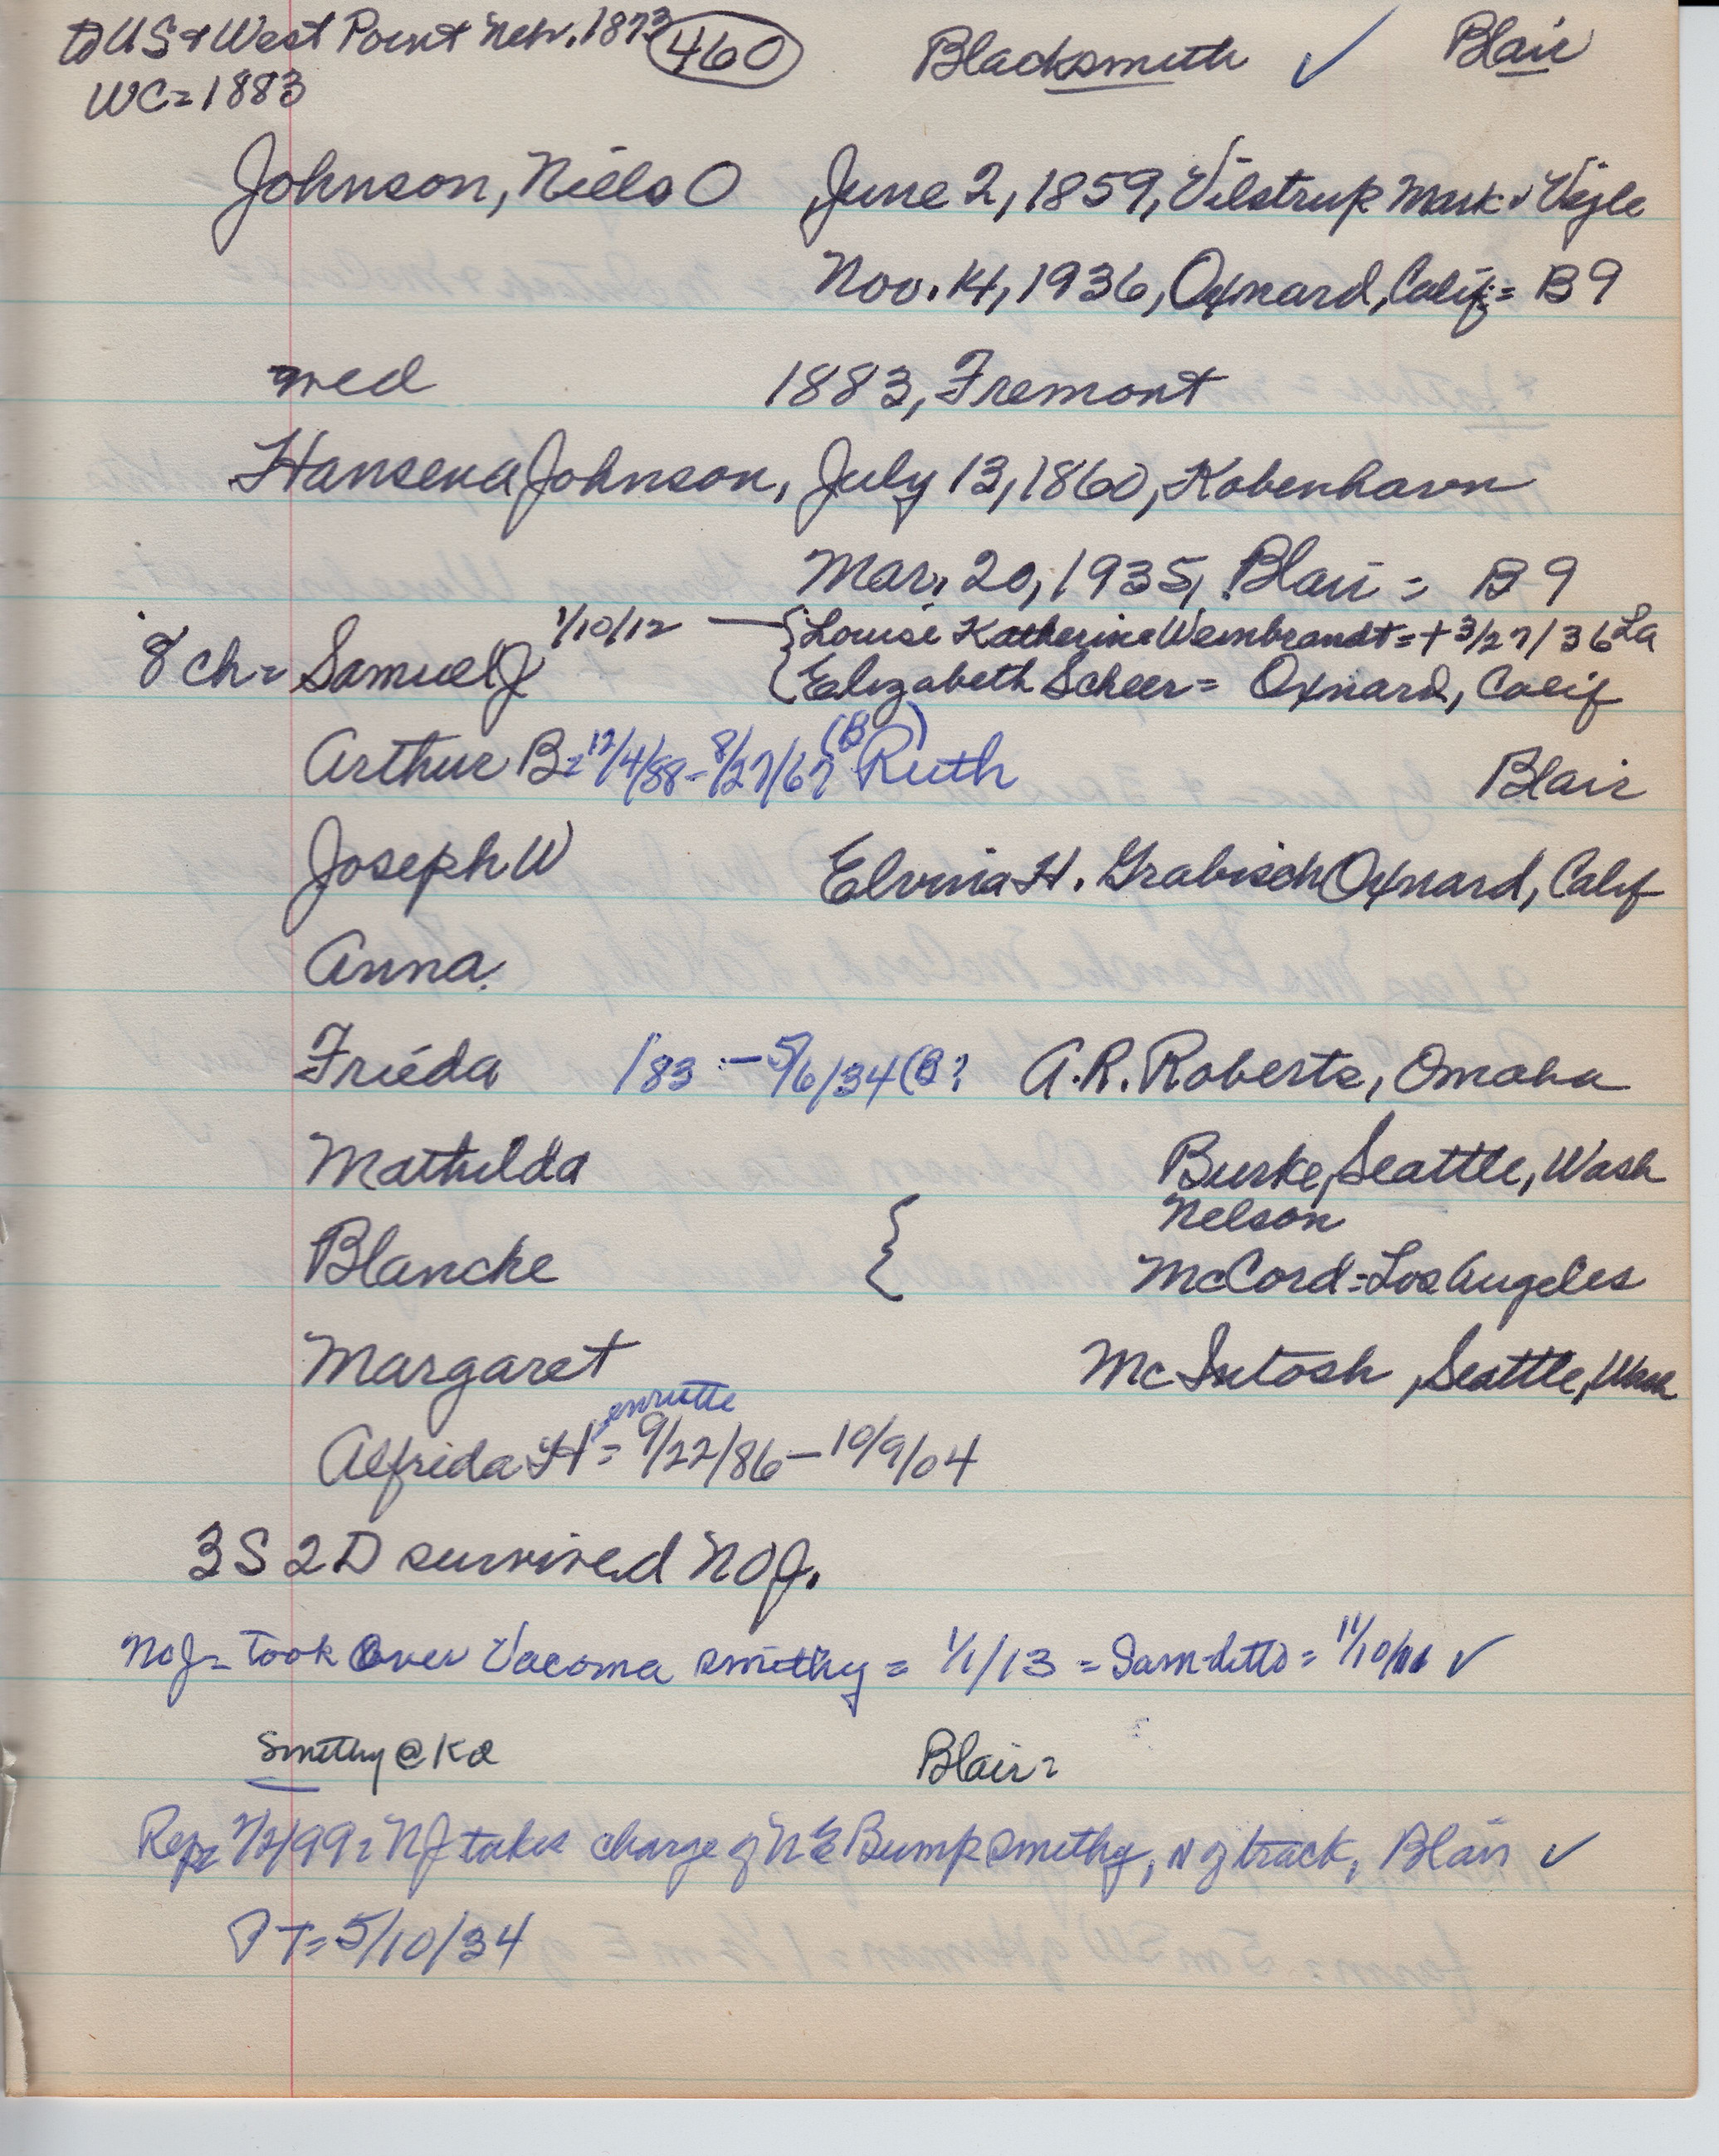 to US & West Point Nebr. 1873 460 Blacksmith ✓ Blair
WC=1883
Johnson, Niels O June 2, 1859, Vilstrup Mark, Vejle
Nov. 14, 1936, Oxnard, Calif = B9
med 1883, Fremont
Hansena Johnson, July 13, 1860, Kobenhavn
Mar. 20, 1935, Blair = B9
8 ch = Samuel J 1/10/12 — { Louise Katherine Weinbrandt = + 3/27/36 La
{ Elizabeth Scheer = Oxnard, Calif
Arthur B = 12/4/88 - 8/27/67 (B) Ruth Blair
Joseph W Elvina H. Grabisch Oxnard, Calif
Anna.
Frieda / 83 - 5/6/34 (B? A.R. Roberts, Omaha
Mathilda Burke, Seattle, Wash
Nelson
Blancke { McCord = Los Angeles
Margaret McIntosh, Seattle, Wash
enriette
Alfrida H = 9/22/86 - 10/9/04
3 S 2 D survived NOJ.
NOJ = Took Over Vacoma smithy = 1/1/13 = Sam-ditto = ✓
Smithy @ Ka Blair =
Rep = 7/2/99 = NJ takes charge of N E Bump smithy, N of track, Blair ✓
PT = 5/10/34